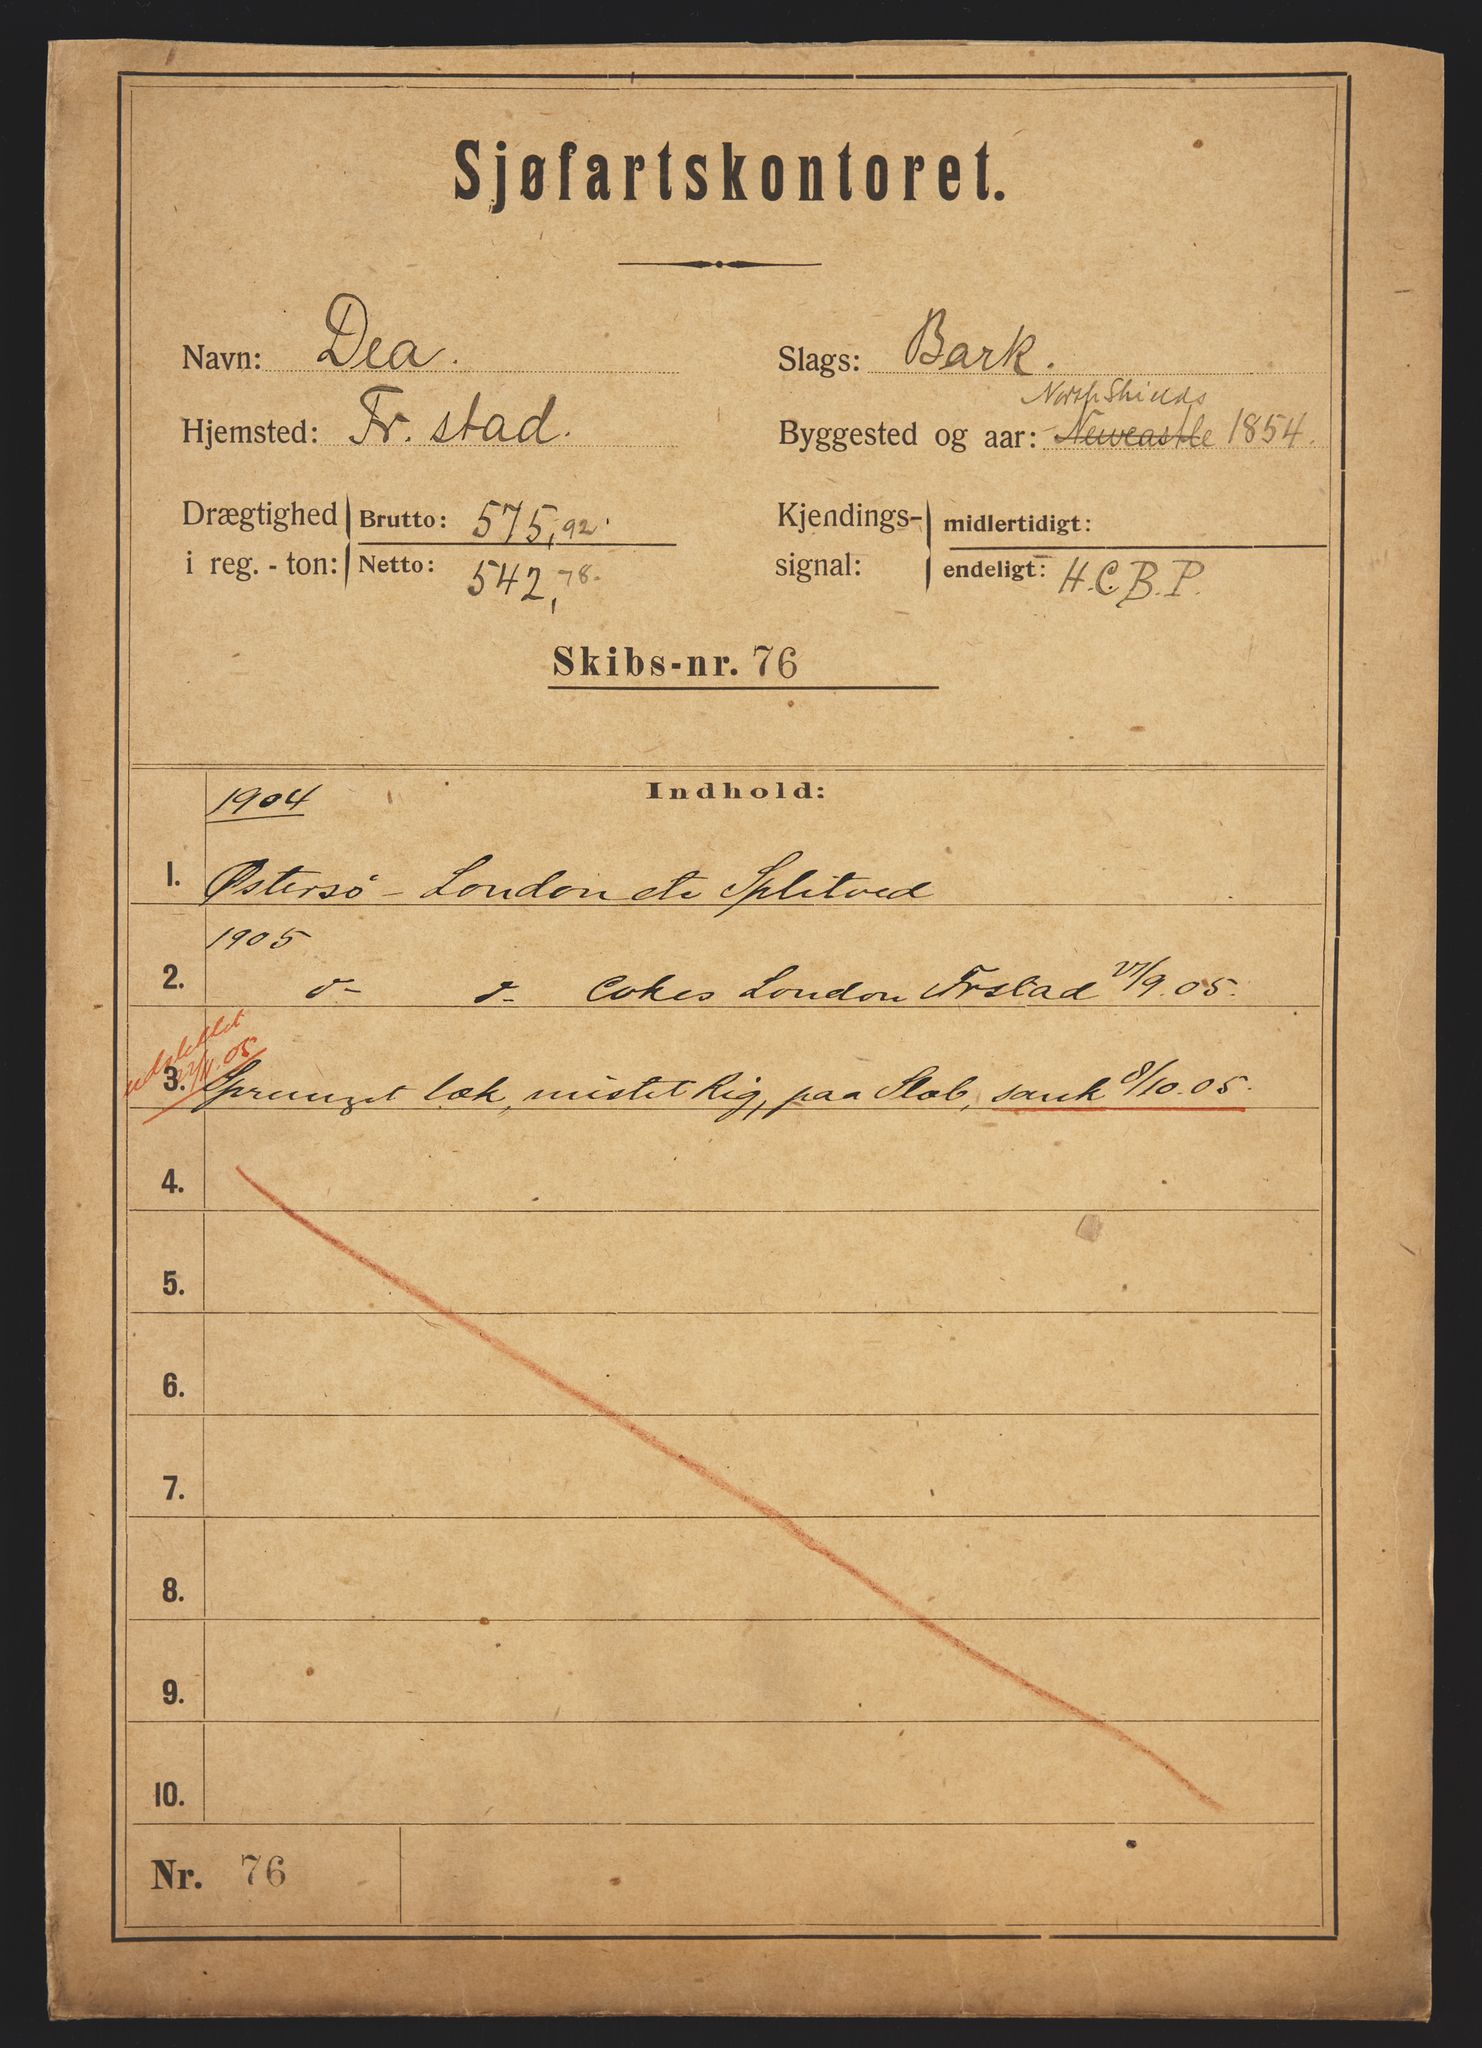 Sjøfartskontoret.
Navn: Dea.
Slags: Bark.
North Shields
Hjemsted: Fr. stad.
Byggested og aar: Newcastle 1854.
Drægtighed i reg. - ton: Brutto: 575,92.
Netto: 542,78.
Kjendings- signal: midlertidigt:
endeligt: H.C.B.P.
Skibs-nr. 76
Indhold:
1904
1. Østersø - London etc Splitved
1905
2. d- d- Cokes London Frstad 27/9.05.
udslettet
22/11.05
3. Sprunget læk, mistet Rig, paa Slæb, sank 8/10.05.
4.
5.
6.
7.
8.
9.
10.
Nr. 76